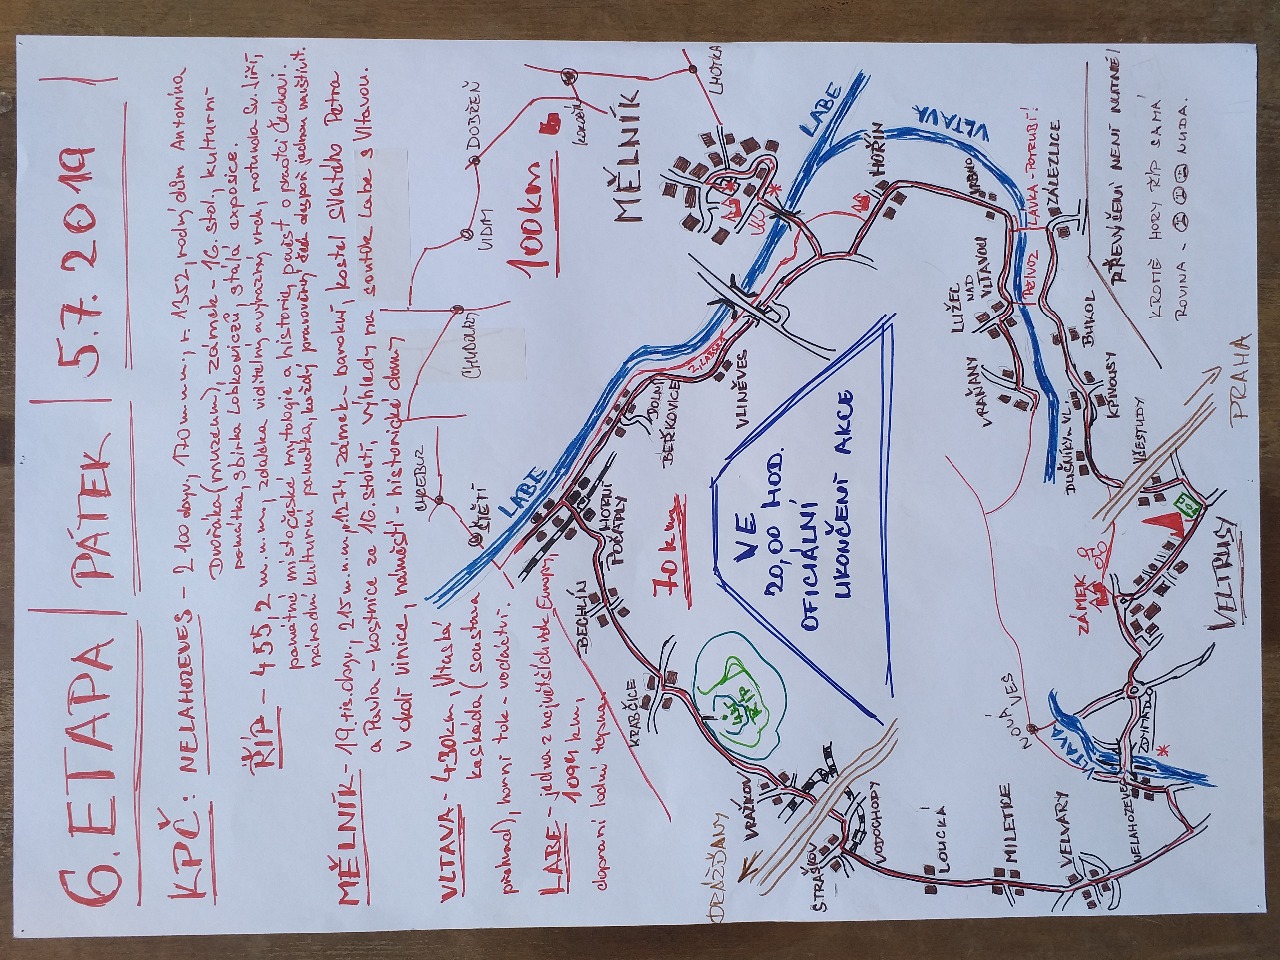 6. ETAPA | PÁTEK | 5.7.2019 |
KPČ: NELAHOZEVES - 2 100 obyv., 170 m n.m., r. 1352, rodný dům Antonína
Dvořáka (muzeum), zámek - 16. stol., kulturní
památka, sbírka Lobkowiczů, stálá expozice.
ŘÍP - 455,2 m.n.m., zdaleka viditelný výrazný vrch, rotunda Sv. Jiří,
památné místo české mytologie a historie, pověst o praotci Čechovi.
národní kulturní památka, každý pravověrný Čech alespoň jednou navštívit.
MĚLNÍK - 19.tis.obyv., 215 m.n.m., 1274, zámek - barokní, kostel Svatého Petra
a Pavla - kostnice ze 16. století, výhledy na soutok Labe s Vltavou.
v okolí vinice, náměstí - historické domy
VLTAVA - 430 km, Vltavská
kaskáda (soustava
přehrad), horní tok - vodáctví.
LABE - jedna z největších řek Evropy,
1094 km,
dopravní lodní tepna.
LHOTKA
KOKOŘÍN
DOBŘEŇ
VIDIM
CHUDOLAZY
ÚHEBUZ
ŠTĚTÍ
100 km
MĚLNÍK
LABE
VLTAVA
HOŘÍN
VRBNO
LÁVKA - POTRUBÍ!
ZÁLEZLICE
PŘEVÝŠENÍ NENÍ NUTNÉ!
KROMĚ HORY ŘÍP SAMÁ
ROVINA - NUDA.
LUŽEC
NAD
VLTAVOU
Přívoz
BUKOL
VRAŇANY
KŘIVOUSY
DUŠNÍKY n. VL.
VŠESTUDY
PRAHA
VLINĚVES
DOLNÍ
BEŘKOVICE
LABE
HORNÍ
POČAPLY
BECHLÍN
70 km
VE
20,00 HOD.
OFICIÁLNÍ
UKONČENÍ AKCE
KRABČICE
ŘÍP
ZÁMEK
VELTRUSY
NOVÁ
VES
VLTAVA
NELAHOZEVES
VELVARY
MILETICE
LOUCKÁ
VODOCHODY
STRAŠKOV
VRAŽKOV
DRÁŽĎANY